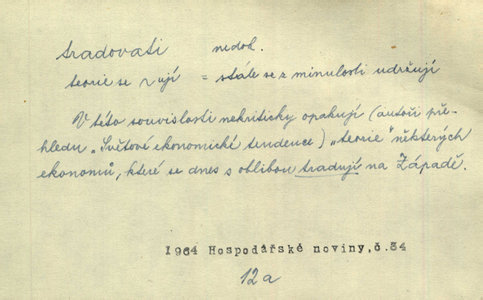 tradovati nedok.
teorie se ~ují = stále se z minulosti udržují
V této souvislosti nekriticky opakují (autoři pře-
hledu „Světové ekonomické tendence") „teorie" některých
ekonomů, které se dnes s oblibou tradují na Západě.
1964 Hospodářské noviny,č.34
12a